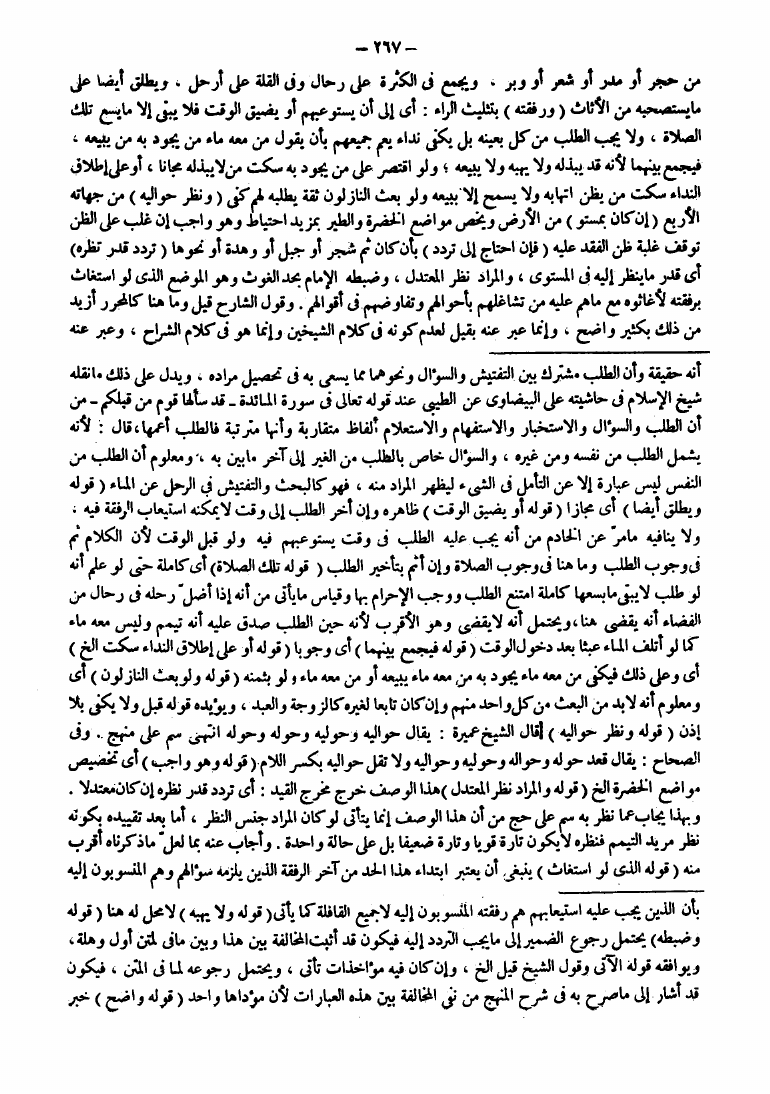 - ٢٦٧ -
من حجر أو مدر أو شعر أو وبر ، ويجمع فى الكثرة على رحال وفى القلة على أرحل ، ويطلق أيضا على
مايستصحبه من الأثاث ( ورفقته ) بتثليث الراء : أى إلى أن يستوعبهم أو يضيق الوقت فلا يبقى إلا مايسع تلك
الصلاة ، ولا يجب الطلب من كل بعينه بل يكفى نداء يعم جميعهم بأن يقول من معه ماء من يجود به من يبيعه ،
فيجمع بينهما لأنه قد يبذله ولا يهبه ولا يبيعه ؛ ولو اقتصر على من يجود به سكت من لايبذله مجانا ، أوعلى إطلاق
النداء سكت من يظن اتهابه ولا يسمح إلا ببيعه ولو بعث النازلون ثقة يطلبه لهم كفى ( ونظر حواليه ) من جهاته
الأربع ( إن كان بمستو ) من الأرض ويخص مواضع الخضرة والطير بمزيد احتياط وهو واجب إن غلب على الظن
توقف غلبة ظن الفقد عليه ( فإن احتاج إلى تردد ) بأن كان ثم شجر أو جبل أو وهدة أو نحوها ( تردد قدر نظره )
أى قدر ماينظر إليه فى المستوى ، والمراد نظر المعتدل ، وضبطه الإمام بحد الغوث وهو الموضع الذى لو استغاث
برفقته لأغاثوه مع ماهم عليه من تشاغلهم بأحوالهم وتفاوضهم فى أقوالهم . وقول الشارح قيل وما هنا كالمحرر أزيد
من ذلك بكثير واضح ، وإنما عبر عنه بقيل لعدم كونه فى كلام الشيخين وإنما هو فى كلام الشراح ، وعبر عنه
أنه حقيقة وأن الطلب مشترك بين التفتيش والسؤال ونحوهما مما يسعى به فى تحصيل مراده ، ويدل على ذلك مانقله
شيخ الإسلام فى حاشيته على البيضاوى عن الطيبى عند قوله تعالى فى سورة المائدة - قد سألها قوم من قبلكم - من
أن الطلب والسؤال والاستخبار والاستفهام والاستعلام ألفاظ متقاربة وأنها مترتبة فالطلب أعمها، قال : لأنه
يشمل الطلب من نفسه ومن غيره ، والسؤال خاص بالطلب من الغير إلى آخر مابين به ، ومعلوم أن الطلب من
النفس ليس عبارة إلا عن التأمل فى الشىء ليظهر المراد منه ، فهو كالبحث والتفتيش فى الرحل عن الماء ( قوله
ويطلق أيضا ) أى مجازا ( قوله أو يضيق الوقت ) ظاهره وإن أخر الطلب إلى وقت لايمكنه استيعاب الرفقة فيه ،
ولا ينافيه مامرّ عن الخادم من أنه يجب عليه الطلب فى وقت يستوعبهم فيه ولو قبل الوقت لأن الكلام ثم
فى وجوب الطلب وما هنا فى وجوب الصلاة وإن أثم بتأخير الطلب ( قوله تلك الصلاة) أى كاملة حتى لو علم أنه
لو طلب لايبقى مايسعها كاملة امتنع الطلب ووجب الإحرام بها وقياس مايأتى من أنه إذا أضلّ رحله فى رحال من
الفضاء أنه يقضى هنا، ويحتمل أنه لايقضى وهو الأقرب لأنه حين الطلب صدق عليه أنه تيمم وليس معه ماء
كما لو أتلف الماء عبثا بعد دخول الوقت ( قوله فيجمع بينهما ) أى وجوبا ( قوله أو على إطلاق النداء سكت الخ )
أى وعلى ذلك فيكفى من معه ماء يجود به من معه ماء يبيعه أو من معه ماء ولو بثمنه ( قوله ولو بعث النازلون ) أى
ومعلوم أنه لابد من البعث من كل واحد منهم وإن كان تابعا لغيره كالزوجة والعبد ، ويؤيده قوله قبل ولا يكفى بلا
إذن ( قوله ونظر حواليه ) قال الشيخ عميرة : يقال حواليه وحوليه وحوله وحوله انتهى سم على منهج . وفى
الصحاح : يقال قعد حوله وحواله وحوليه وحواليه ولا تقل حواليه بكسر اللام ( قوله وهو واجب ) أى تخصيص
مواضع الخضرة الخ ( قوله والمراد نظر المعتدل ) هذا الوصف خرج مخرج القيد : أى تردد قدر نظره إن كان معتدلا .
وبهذا يجاب عما نظر به سم على حج من أن هذا الوصف إنما يتأتى لو كان المراد جنس النظر ، أما بعد تقييده بكونه
نظر مريد التيمم فنظره لايكون تارة قويا وتارة ضعيفا بل على حالة واحدة . وأجاب عنه بما لعلّ ماذكرناه أقرب
منه ( قوله الذى لو استغاث ) ينبغى أن يعتبر ابتداء هذا الحد من آخر الرفقة الذين يلزمه سؤالهم وهم المنسوبون إليه
بأن الذين يجب عليه استيعابهم هم رفقته المنسوبون إليه لاجميع القافلة كما يأتى ( قوله ولا يهبه ) لامحل له هنا ( قوله
وضبطه) يحتمل رجوع الضمير إلى مايجب التردد إليه فيكون قد أثبت المخالفة بين هذا وبين مافى المتن أول وهلة ،
ويوافقه قوله الآتى وقول الشيخ قيل الخ ، وإن كان فيه مؤاخذات تأتى ، ويحتمل رجوعه لما فى المتن ، فيكون
قد أشار إلى ماصرح به فى شرح المنهج من نفى المخالفة بين هذه العبارات لأن مؤداها واحد ( قوله واضح ) خبر